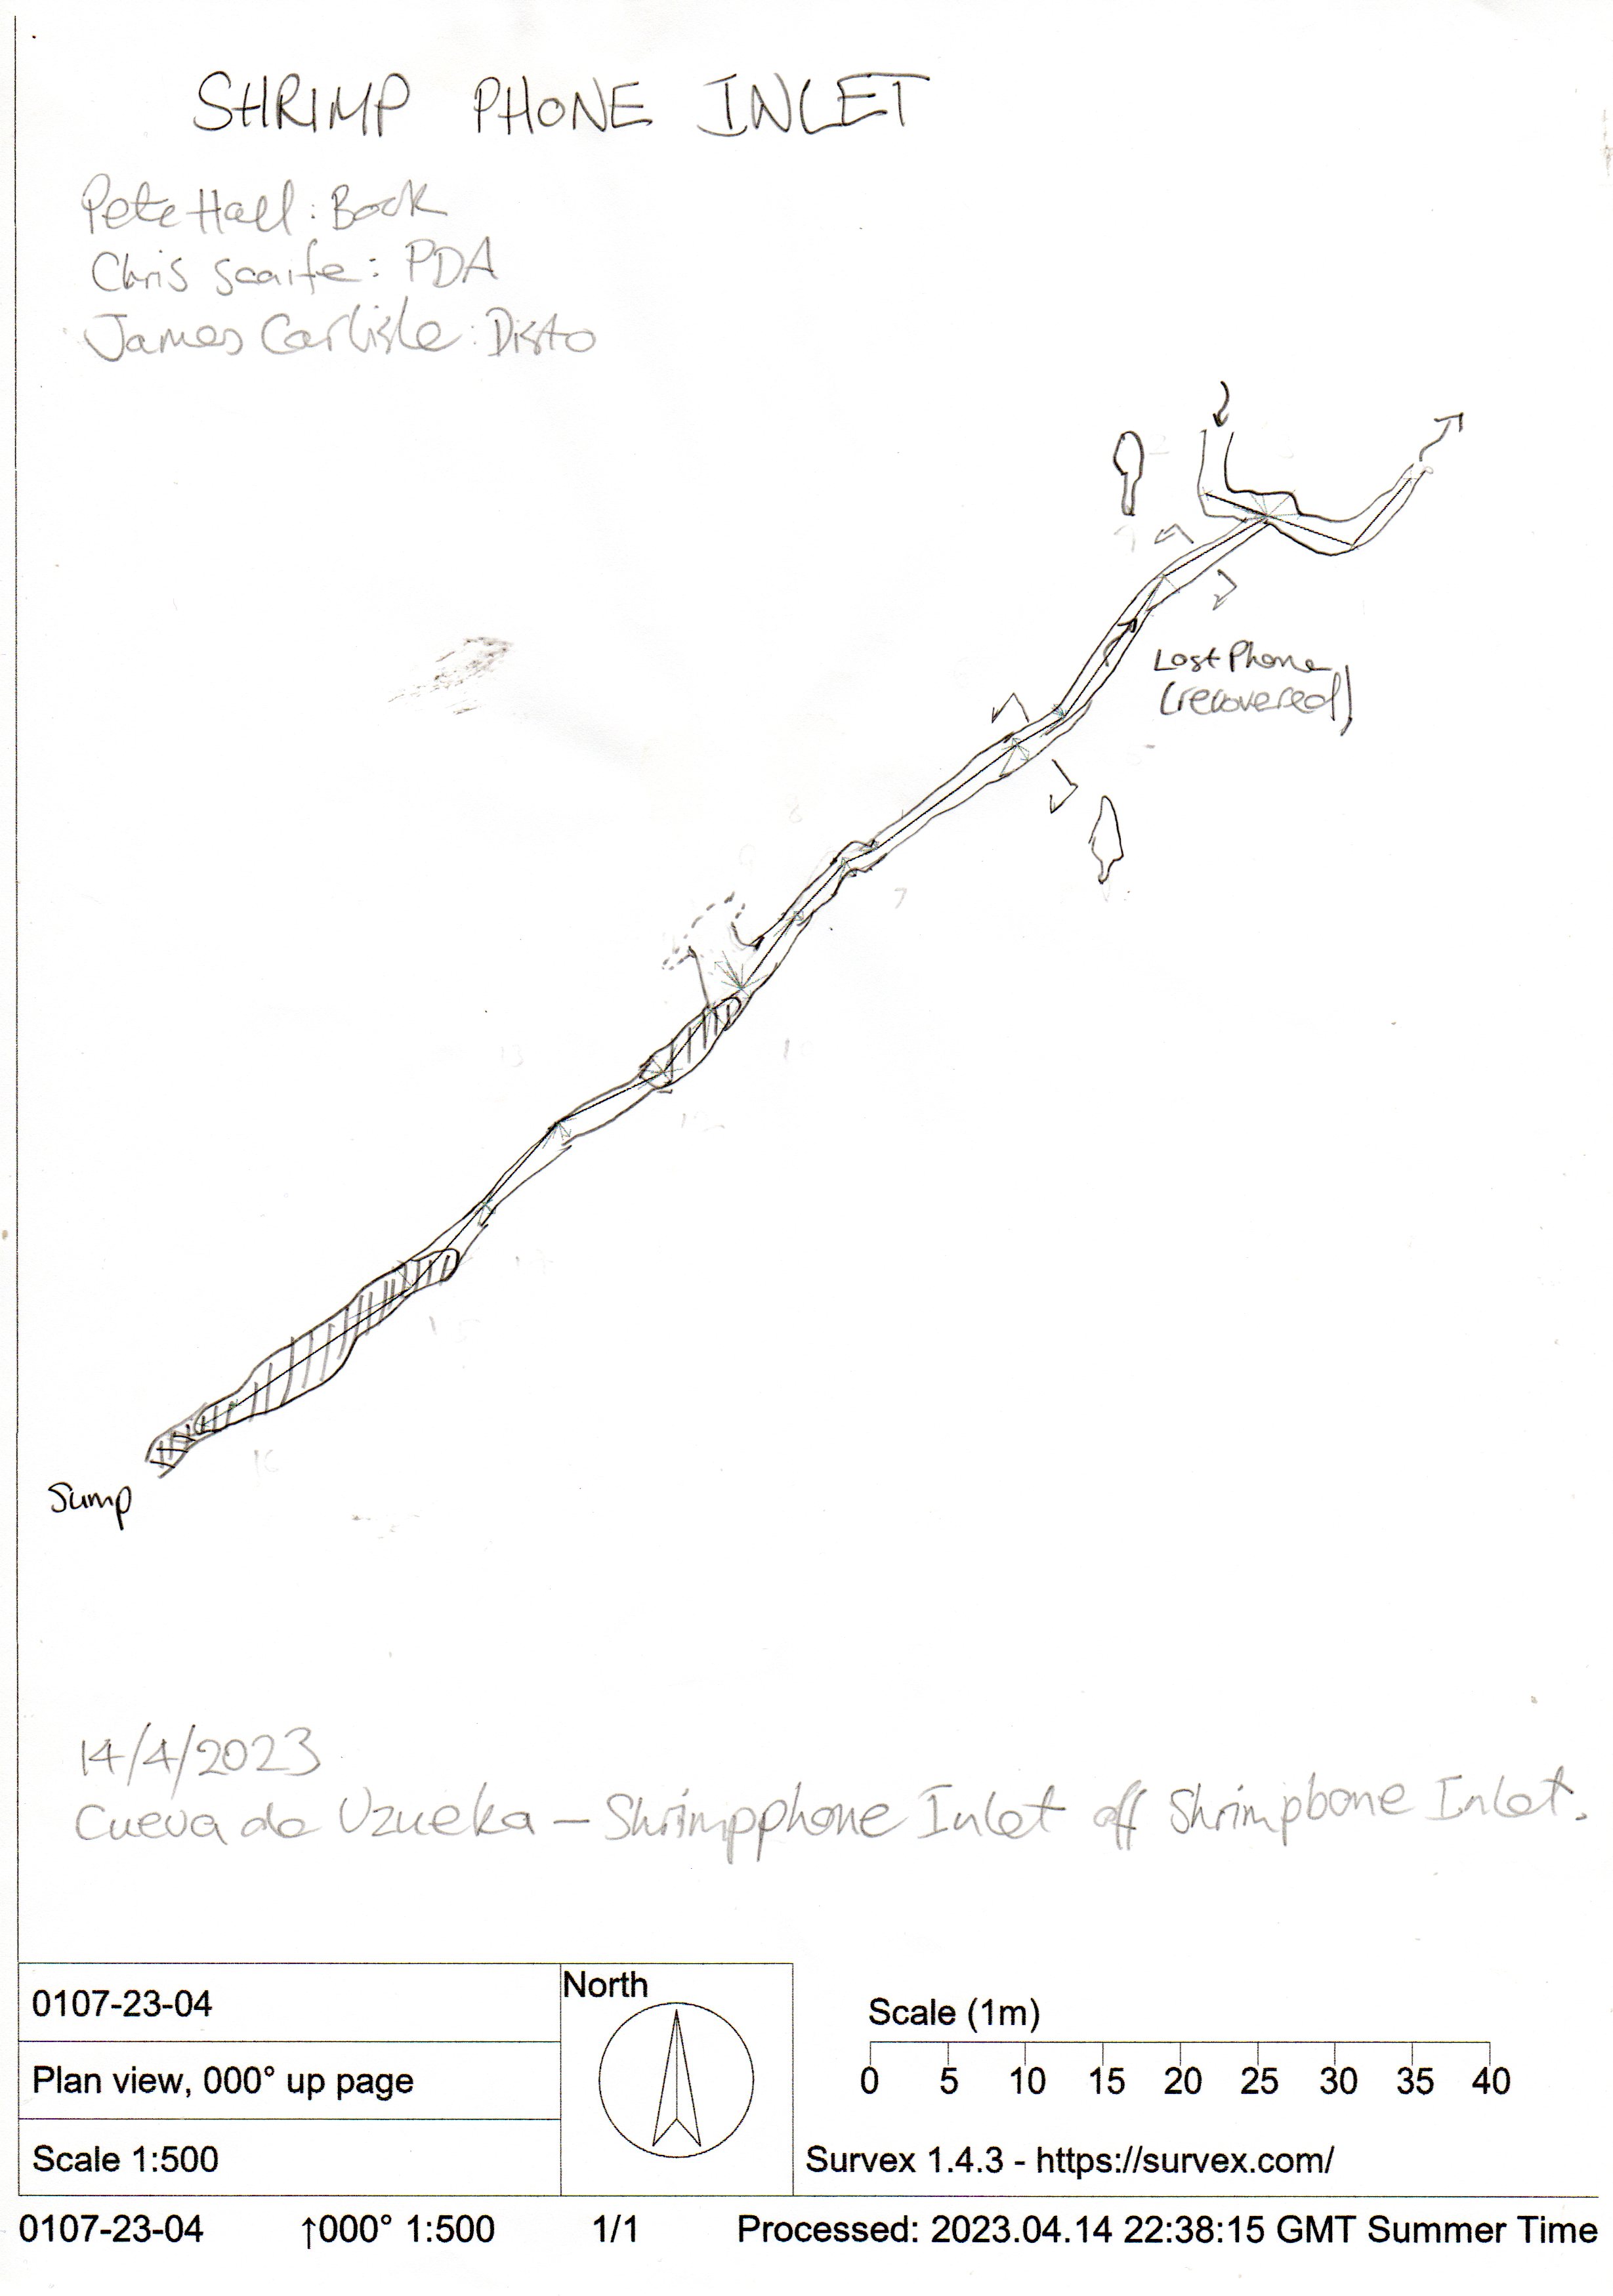 SHRIMP PHONE INLET
Pete Hall: Book
Chris Scaife: PDA
James Carlisle: Disto
Lost Phone
(recovered)
Sump
14/4/2023
Cueva de Uzueka – Shrimpphone Inlet off Shrimpbone Inlet.
0107-23-04
North
Plan view, 000° up page
Scale 1:500
Scale (1m)
0 5 10 15 20 25 30 35 40
Survex 1.4.3 - https://survex.com/
0107-23-04 ↑000° 1:500 1/1 Processed: 2023.04.14 22:38:15 GMT Summer Time